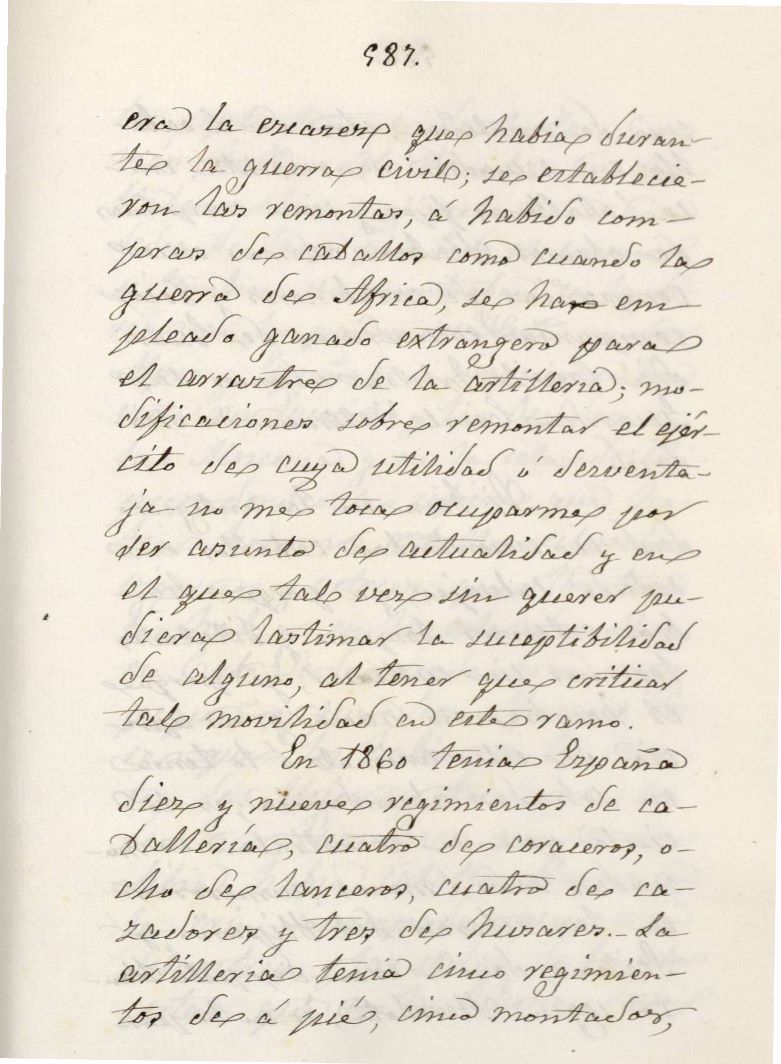 587.
era la escasez que habia duran-
te la guerra civil; se establecie-
ron las remontas, á habido com-
pras de caballos como cuando la
guerra de Africa, se ha em-
pleado ganado extrangero para
el arrastre de la artilleria; mo-
dificaciones sobre remontar el ejér-
cito de cuya utilidad ó desventa-
ja no me toca ocuparme por
ser asunto de actualidad y en
el que tal vez sin querer pu-
diera lastimar la suceptibilidad
de alguno, al tener que criticar
tal movilidad en este ramo.
En 1860 tenia España
diez y nueve regimientos de ca-
ballería, cuatro de coraceros, o-
cho de lanceros, cuatro de ca-
zadores y tres de husares.- La
artilleria tenia cinco regimien-
tos de á pié, cinco montados,